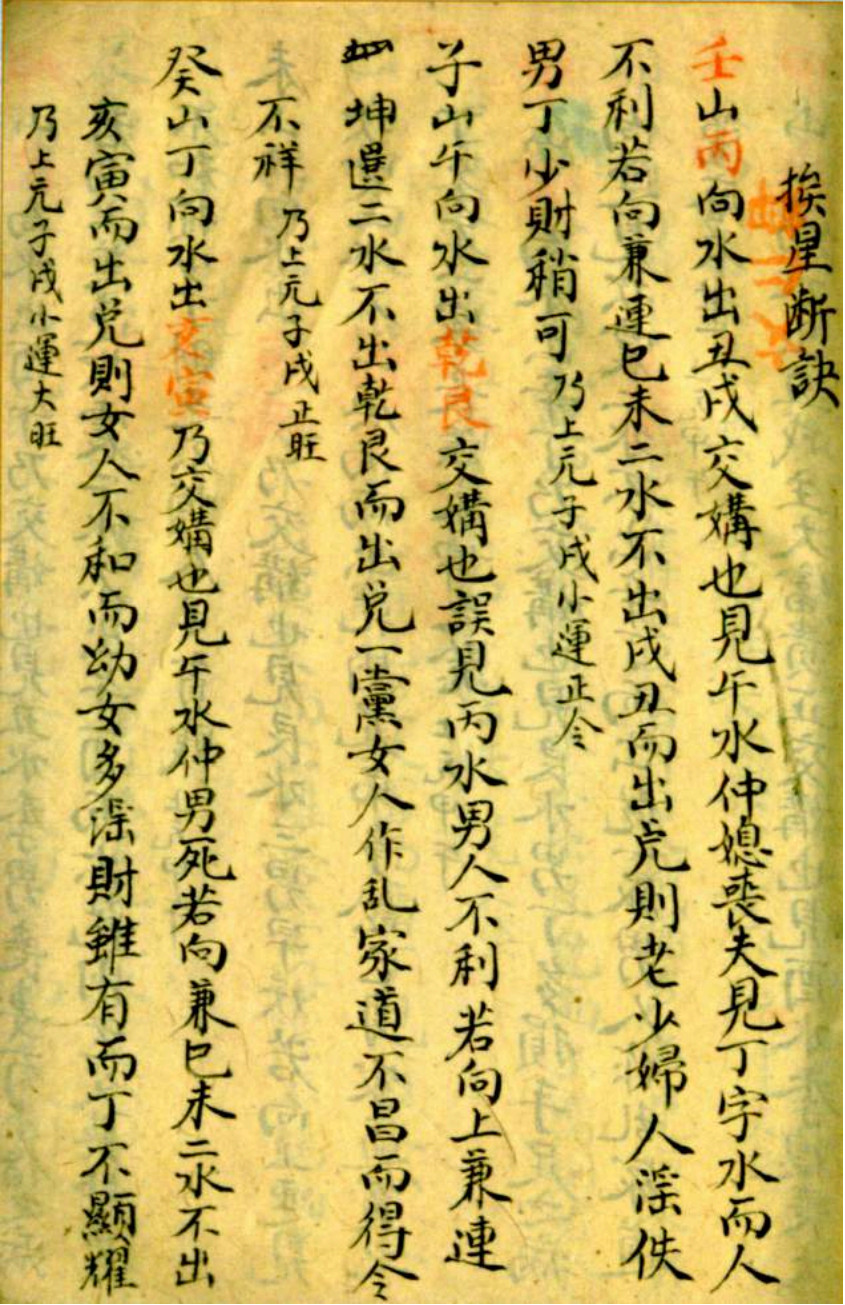 挨星断訣
壬山丙向水出丑戌交媾也見午水仲媳喪夫見丁字水而人
不利若向兼連巳未二水不出戌丑而出兑則老少婦人淫佚
男丁少財稍可乃上元子戌小運正令
子山午向水出乾艮交媾也誤見丙水男人不利若向上兼連
坤選二水不出乾艮而出兑一黨女人作乱家道不昌而得令
不祥乃上元子戌正旺
癸山丁向水出亥寅乃交媾也見午水仲男死若向兼巳未二水不出
亥寅而出兑則女人不和而幼女多淫財雖有而丁不顯耀
乃上元子戌小運大旺